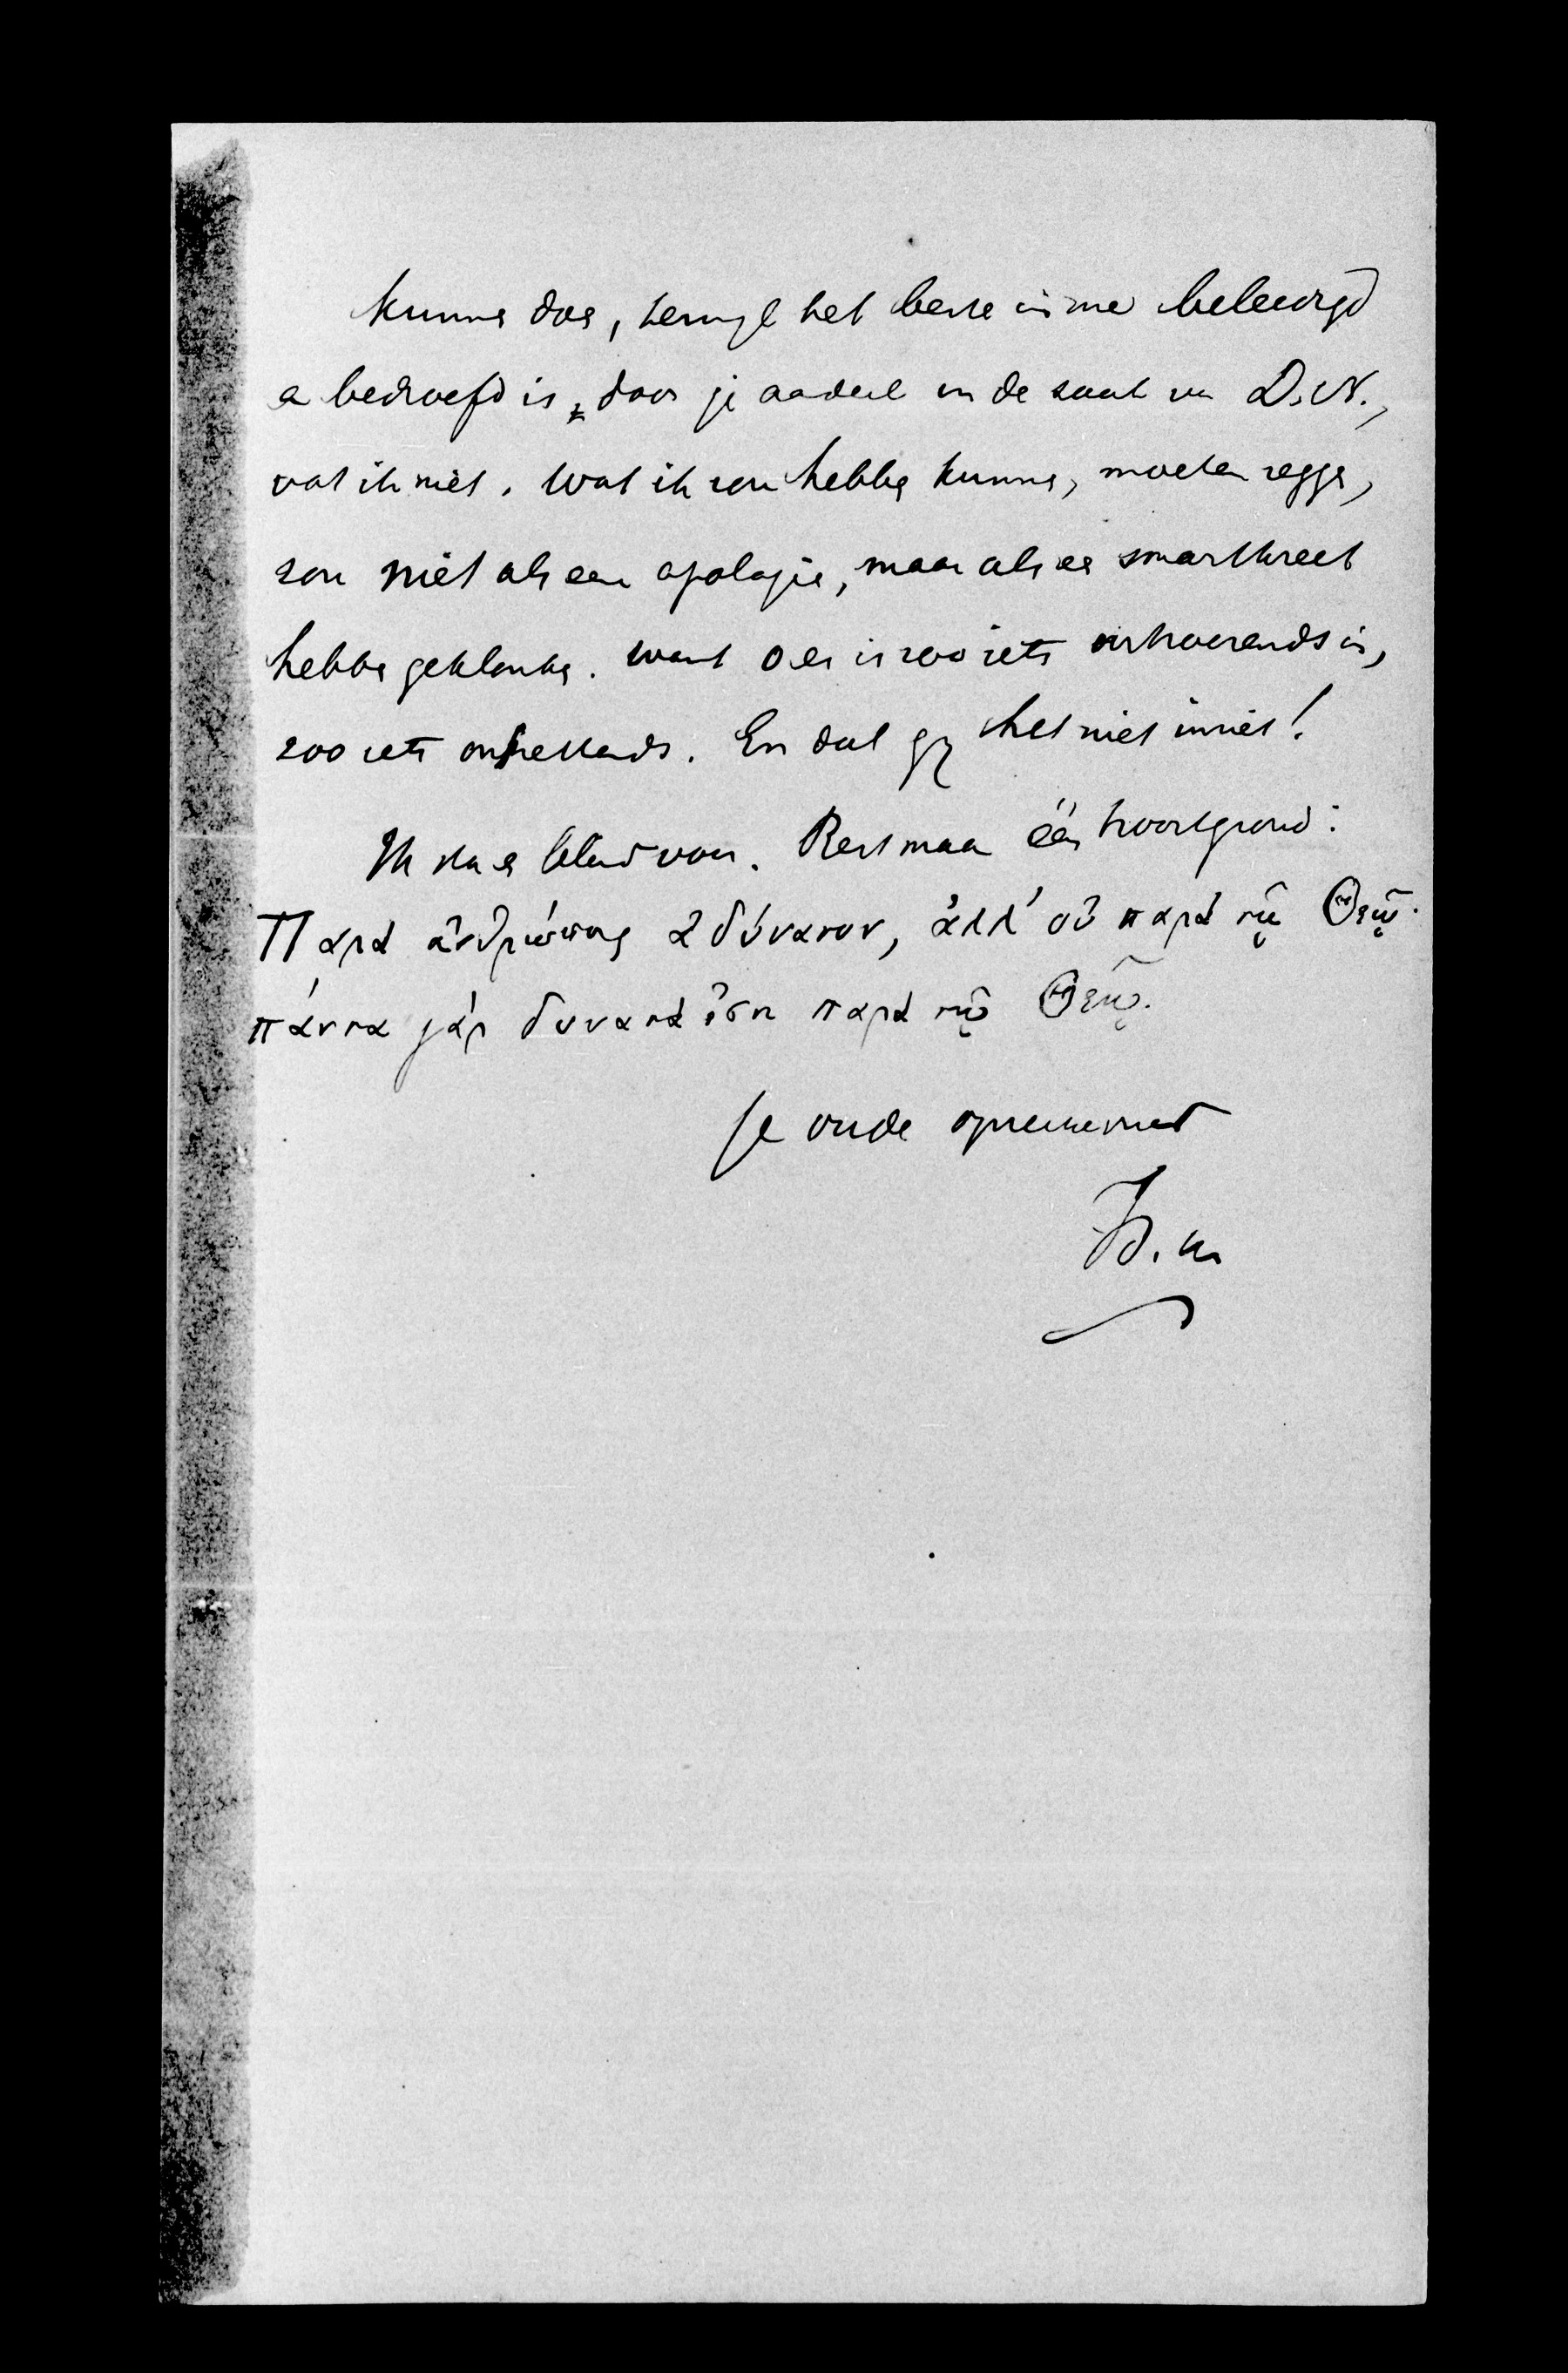 kunnen doen, terwijl het beste in me beleedigd
en bedroefd is, door je aandeel in de zaak van D. N.,
vat ik niet. Wat ik zou hebben kunnen, moeten zeggen,
zou niet als een apologie, maar als een smartkreet
hebben geklonken. Want o er is zoo iets in,
zoo iets ontzettends. En dat gij het niet inziet!
Ik sta er voor. Rest maar één troostgrond:
Παρὰ ἀνθρώποις ἀδύνατον, ἀλλ' οὐ παρὰ τῷ Θεῷ·
πάντα γάρ δυνατά ἐστι παρὰ τῷ Θεῷ.
Je oude